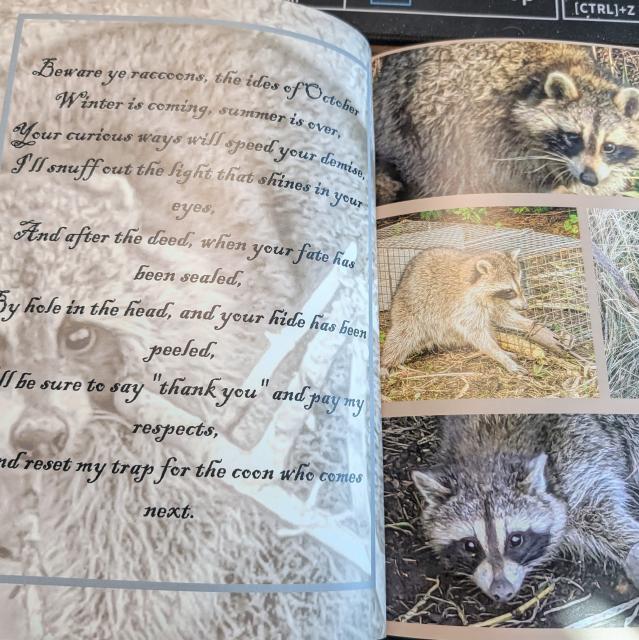 [CTRL]+Z
Beware ye raccoons, the ides of October
Winter is coming, summer is over,
Your curious ways will speed your demise,
I'll snuff out the light that shines in your
eyes,
And after the deed, when your fate has
been sealed,
By hole in the head, and your hide has been
peeled,
be sure to say "thank you" and pay my
respects,
reset my trap for the coon who comes
next.